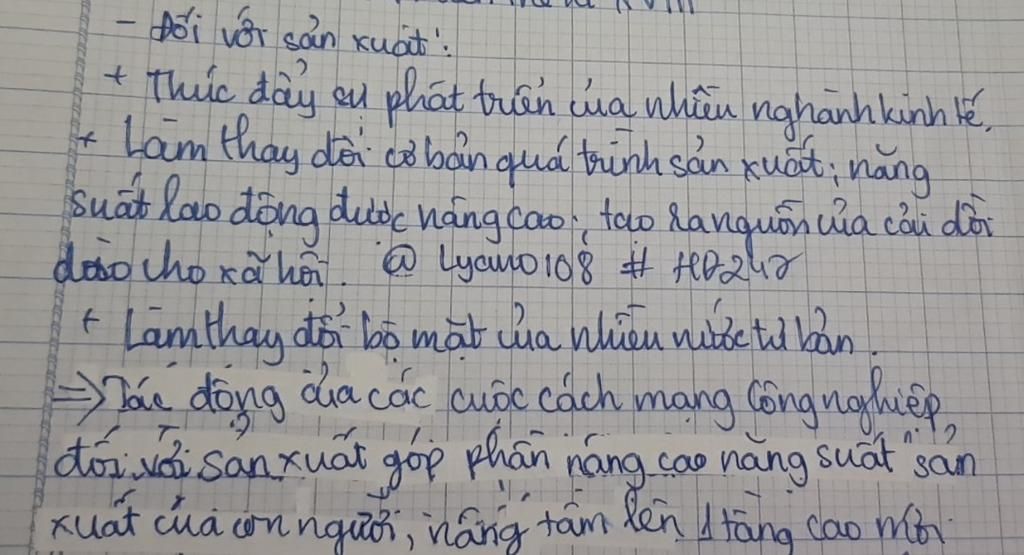 XVIII
- Đối với sản xuất:
+ Thúc đẩy sự phát triển của nhiều nghành kinh tế.
+ Làm thay đổi cơ bản quá trình sản xuất; năng
suất lao động được nâng cao; tạo ra nguồn của cải dồi
dào cho xã hội. @ Lyamo108 # HD247
+ Làm thay đổi bộ mặt của nhiều nước tư bản.
=> Tác động của các cuộc cách mạng công nghiệp
đối với sản xuất góp phần nâng cao năng suất sản
xuất của con người, nâng tầm lên 1 tầng cao mới